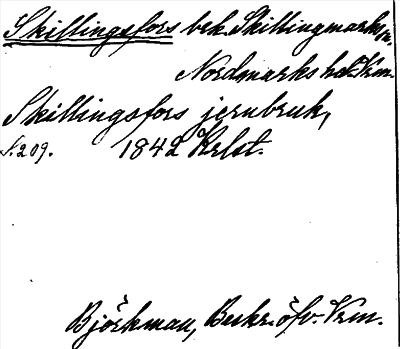 Skillingsfors bek. Skillingmarks sn.
Nordmarks hd. Vrm.
Skillingsfors jernbruk,
S. 209. 1842 Krlst.
Björkman, Beskr. öfv. Vrm.